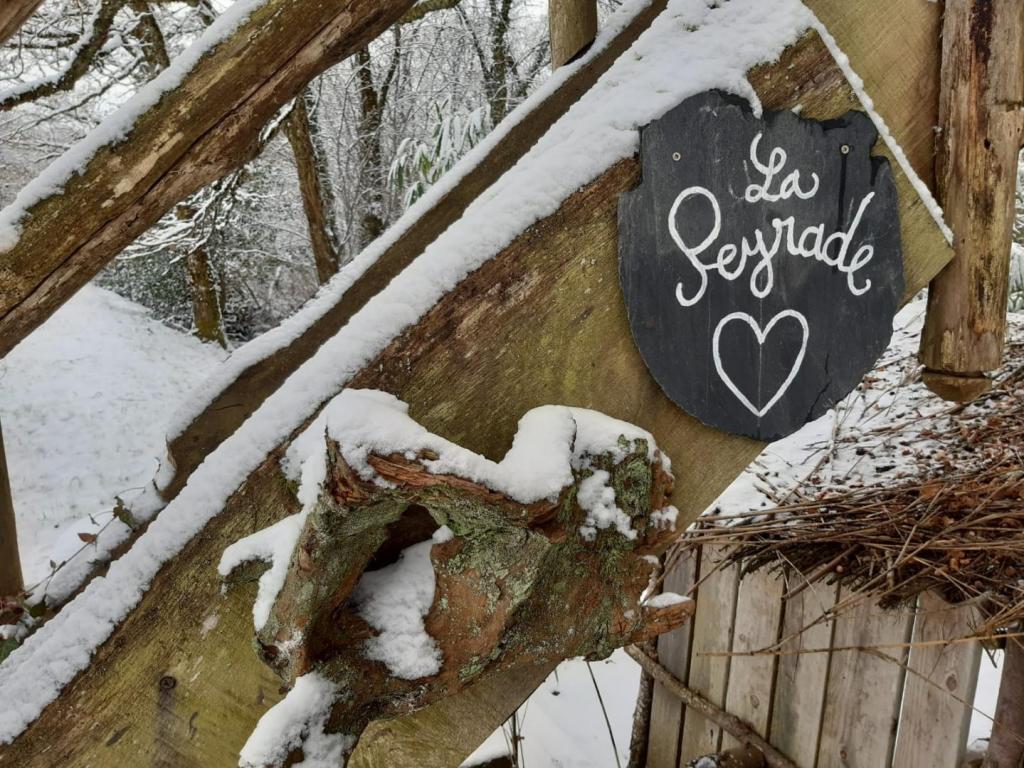 La
Peyrade